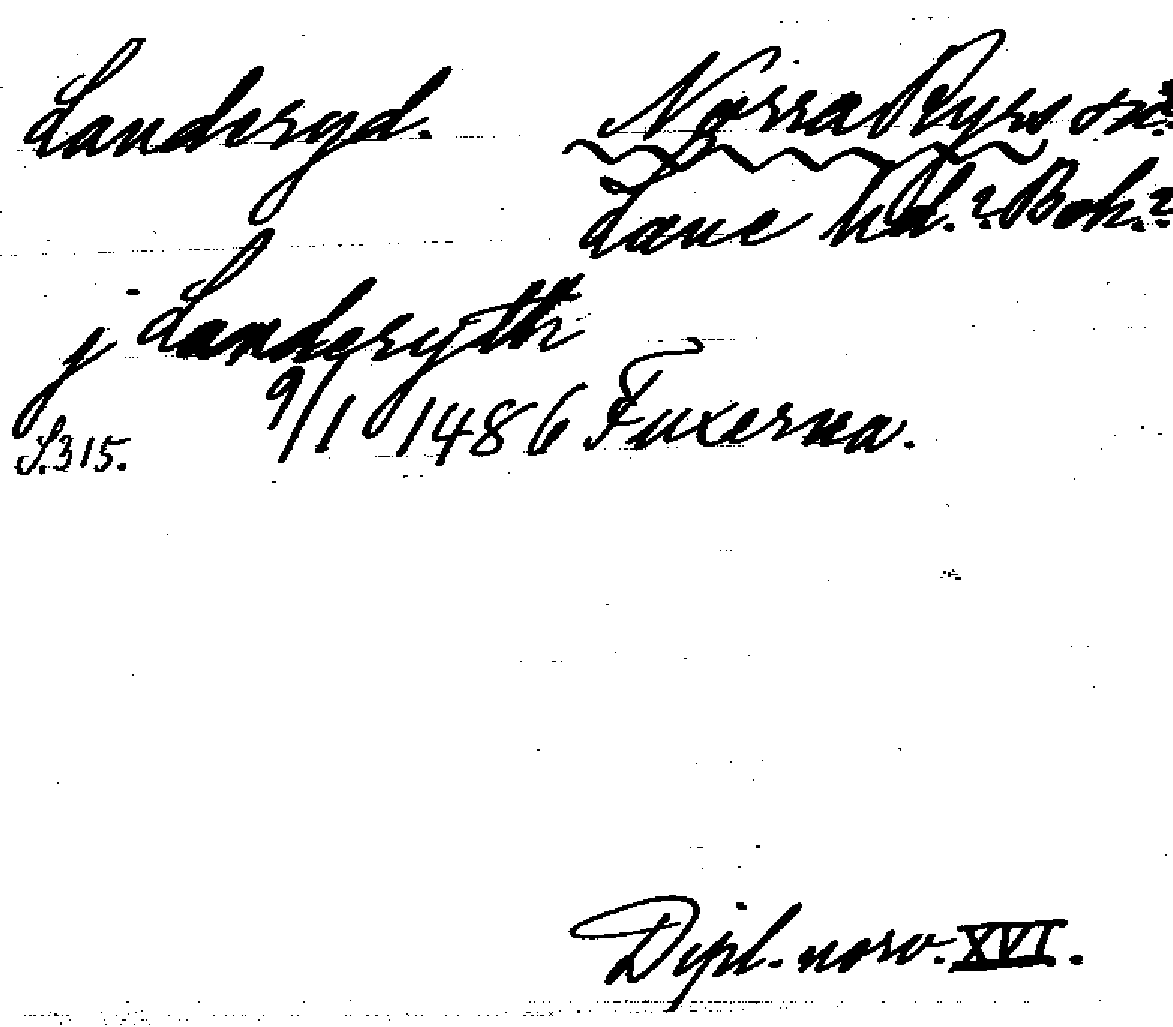 Landeryd. Norra Ryrs sn?
Lane hd.? Boh.?
j Landeryth
S. 315. 9/1 1486 Fuxerna.
Dipl. norv. XVI.